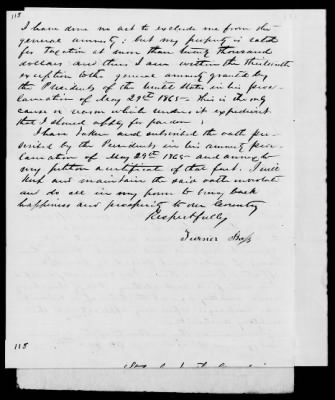 118
I have done no act to exclude me from the
general amnesty; but my property is listed
for Taxation at more than twenty thousand
dollars and thus I am within the thirteenth
exception to the general amnesty granted by
the President of the United States in his proc-
lamation of May 29th 1865 – This is the only
cause or reason which renders it expedient
that I should apply for pardon;
I have taken and subscribed the oath pre-
scribed by the President in his amnesty proc-
lamation of May 29th 1865 – and annex to
my petition a certificate of that fact. I will
keep and maintain the said oath inviolate
and do all in my power to bring back
happiness and prosperity to our Country
Respectfully
Turner
118